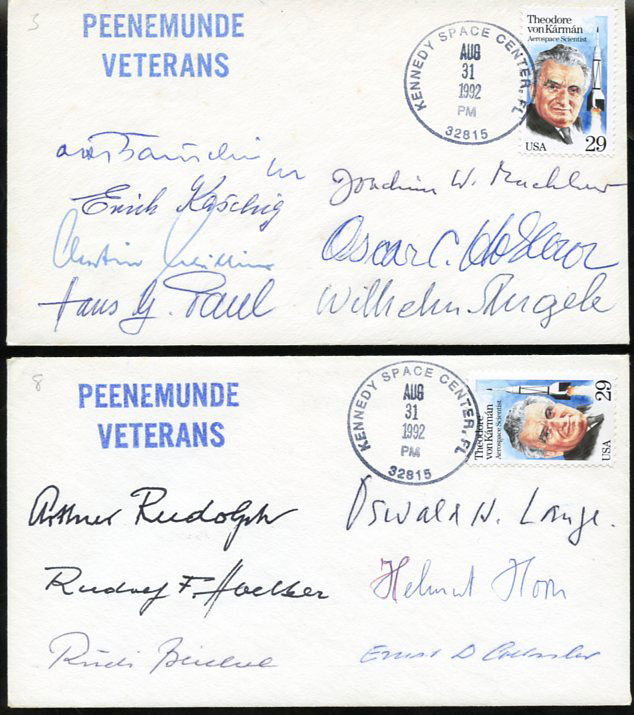 5
PEENEMUNDE
VETERANS
KENNEDY SPACE CENTER, FL
AUG
31
1992
PM
32815
Theodore
von Kármán
Aerospace Scientist
USA
29
Erich Kaschig
Joachim W. Muehlner
Oscar C. Holderer
Hans G. Paul
Wilhelm Angele
8
PEENEMUNDE
VETERANS
KENNEDY SPACE CENTER, FL
AUG
31
1992
PM
32815
Theodore
von Kármán
Aerospace Scientist
USA
29
Arthur Rudolph
Oswald H. Lange.
Rudolf F. Hoelker
Helmut Horn
Rudi
Ernst D